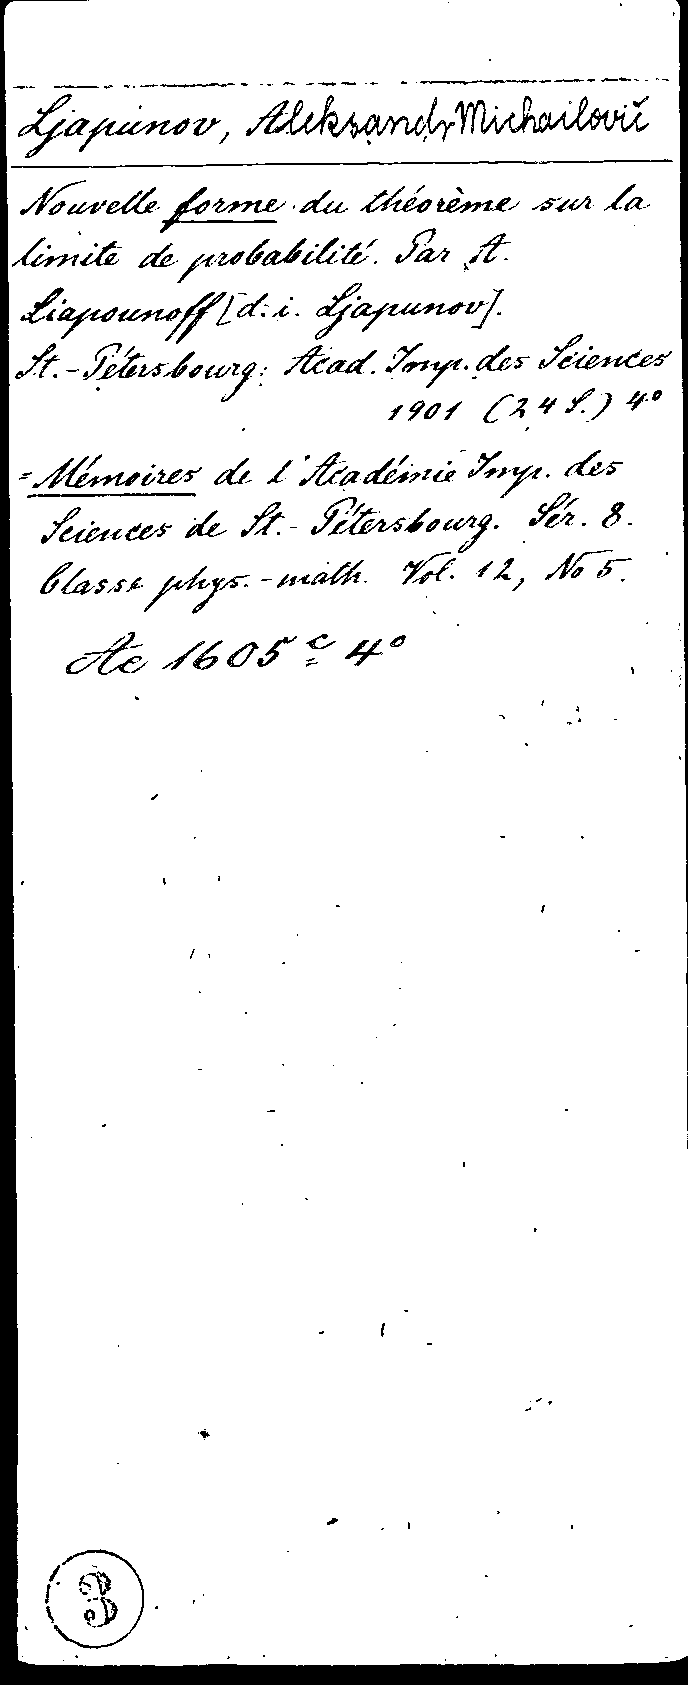 Ljapunov, Aleksandr Michailovič
Nouvelle forme du théorème sur la
limite de probabilité. Par A.
Liapounoff [d. i. Ljapunov].
St.-Pétersbourg: Acad. Imp. des Sciences
1901 (24 S.) 4°
= Mémoires de l'Académie Imp. des
Sciences de St.-Pétersbourg. Sér. 8.
Classe phys.-math. Vol. 12, No 5.
Ac 1605 c 4°
3